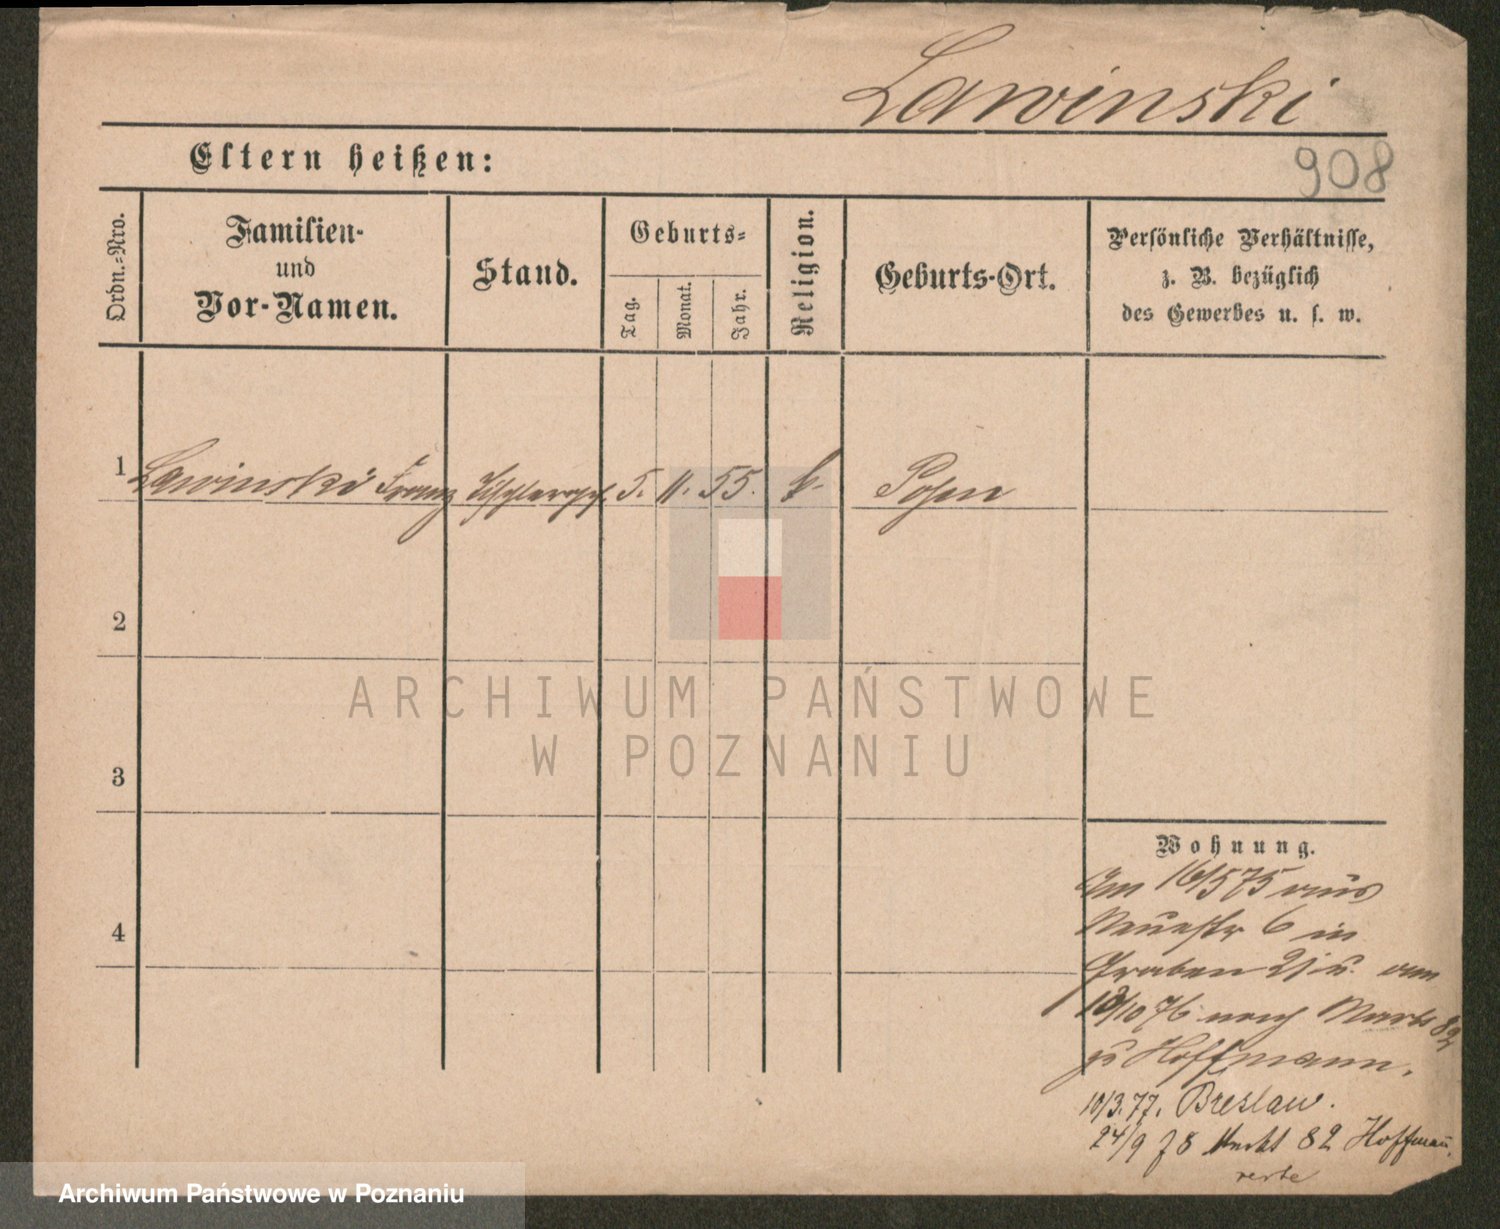 Lawinski
Eltern heißen:
908
Ordn.-Nro.
Familien-
und
Vor-Namen.
Stand.
Geburts-
Tag.
Monat.
Jahr.
Religion.
Geburts-Ort.
Persönliche Verhältnisse,
z. B. bezüglich
des Gewerbes u. s. w.
1
Lawinski Franz
5. 11. 55.
k.
Posen
2
3
4
Wohnung.
Am 16/5 75 aus
Neuestr 6 in
Graben 21 u. am
10/10 76 nach Markt 82
zu Hoffmann.
10/3.77. Breslau.
24/9 78 Markt 82 Hoffmann
ARCHIWUM PAŃSTWOWE
W POZNANIU
Archiwum Państwowe w Poznaniu